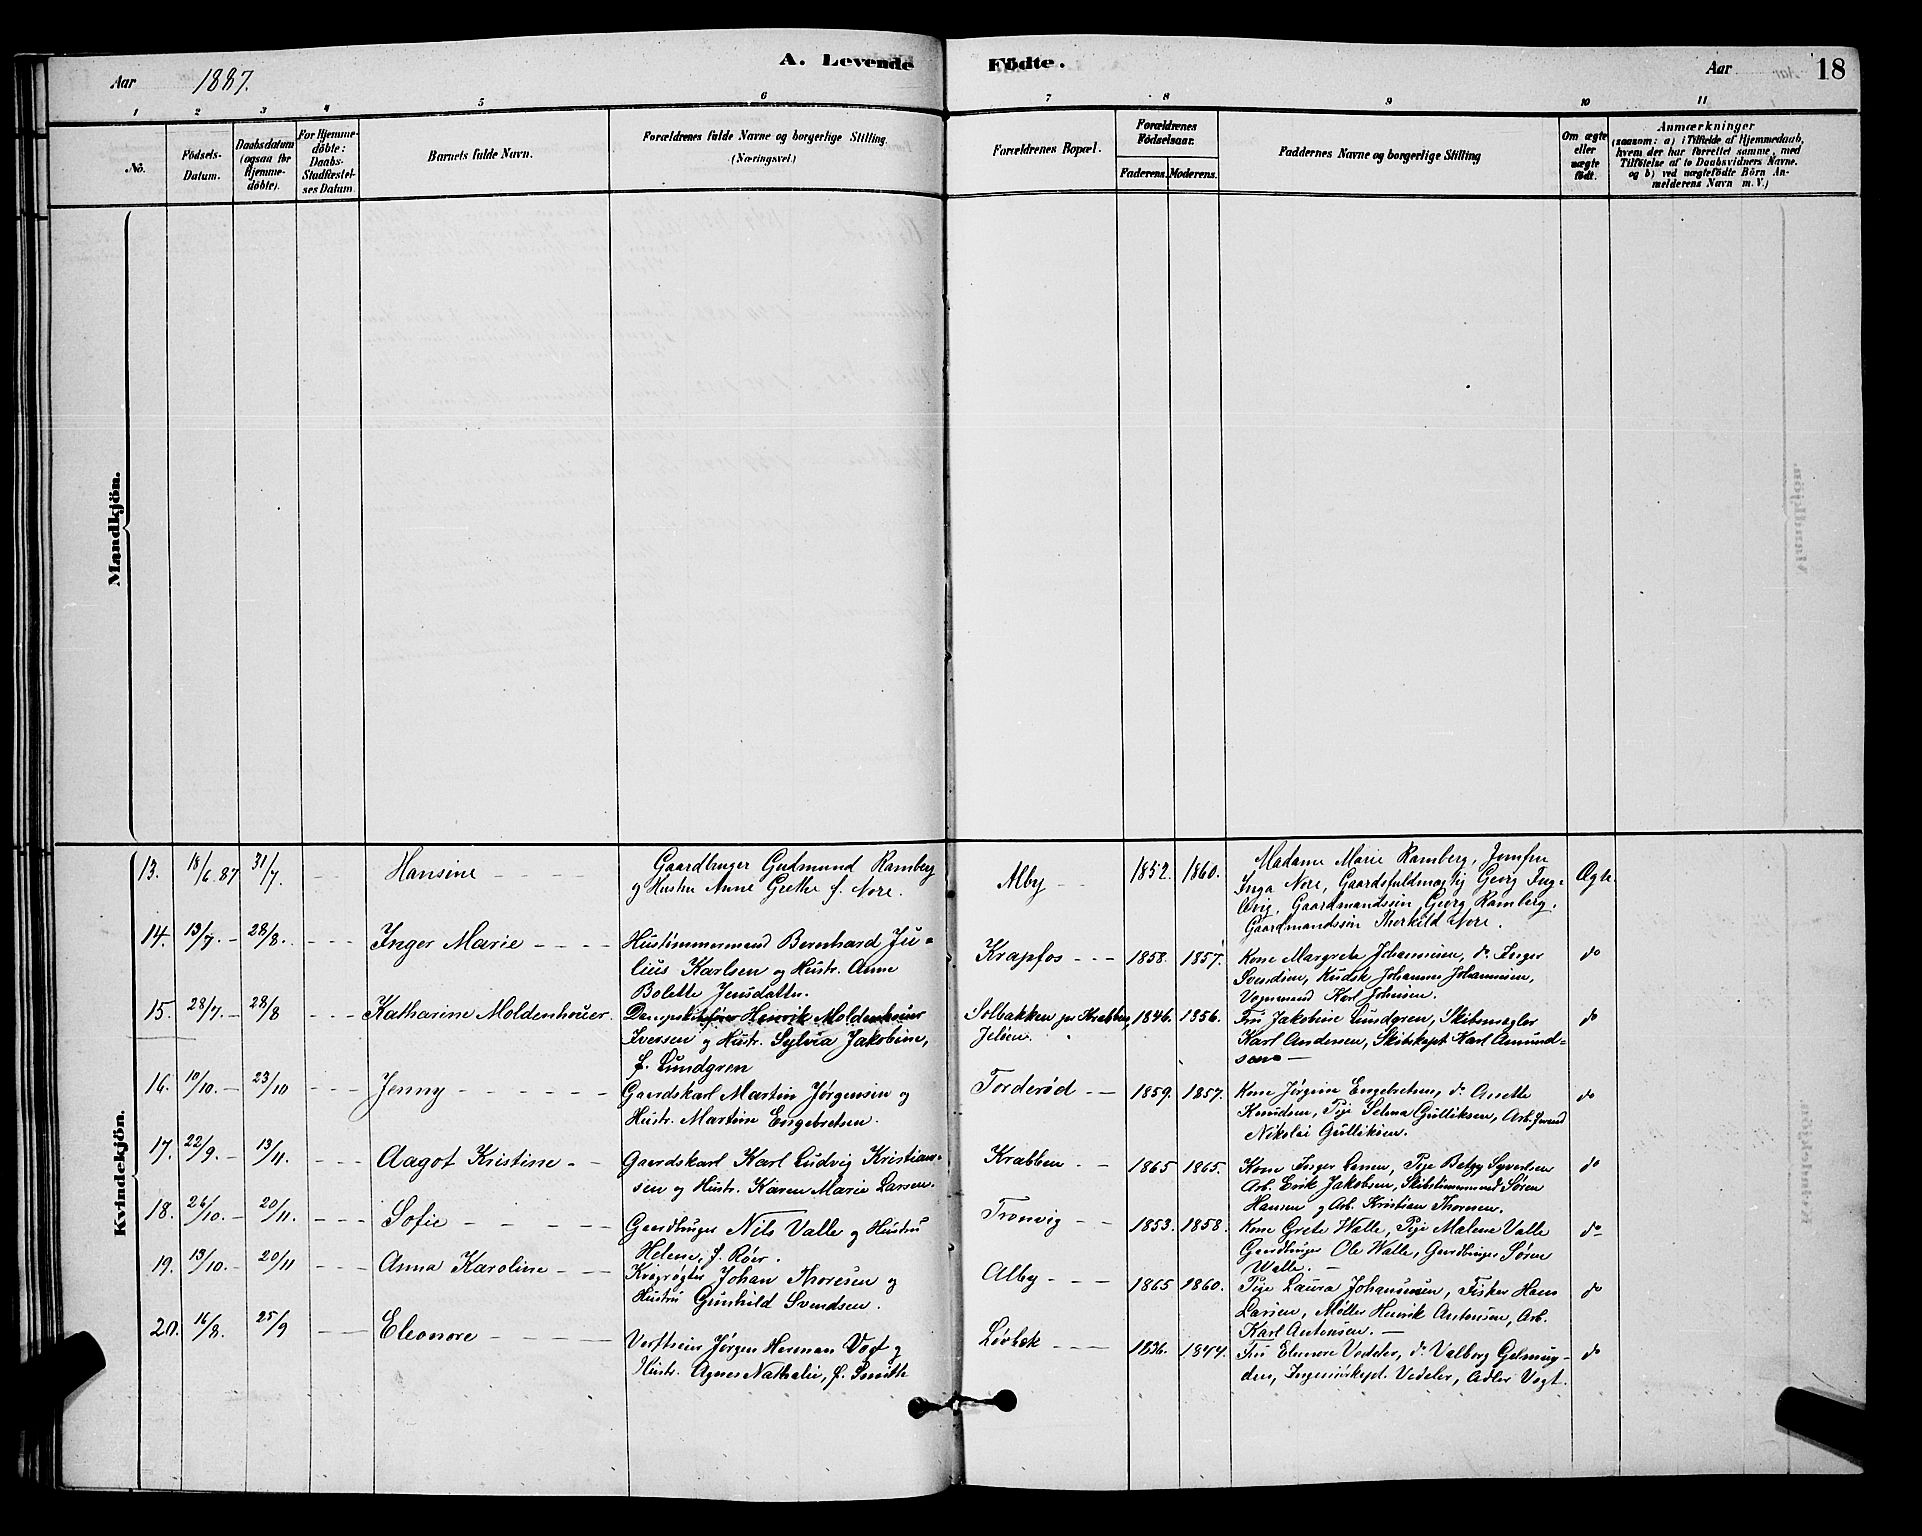 A. Levende Födte.
Aar 1887.
Aar 18
1 2 3 4 5 6 7 8 9 10 11
No.
Födsels-
Datum.
Daabsdatum
(ogsaa for
Hjemme-
döbte).
For Hjemme-
döbte:
Daabs-
Stadfæstel-
ses Datum
Barnets fulde Navn.
Forældrenes fulde Navne og borgerlige Stilling.
(Næringsvei.)
Forældrenes Bopæl.
Forældrenes
Födselsaar.
Faderens. Moderens.
Faddernes Navne og borgerlige Stilling
Om ægte
eller
uægte
födt.
Anmærkninger
(saasom: a) i Tilfælde af Hjemmedaab,
hvem der har forrettet samme, med
Tilföielse af to Daabsvidners Navne.
og b) ved uægtefödte Börn An-
melderens Navn m. V.)
Mandkjön.
Kvindekjön.
13. 18/6 87 31/7. — Hansine
Gaardbruger Gudmund Ramberg
og Hustru Anne Grethe f. Nore.
Alby 1852. 1860.
Madame Marie Ramberg, Jomfru
Inga Nore, Gaardsfuldmægtig Georg
Gaardmandssøn Georg Ramberg.
Gaardmandssøn Thorkild Nore.
Ægte.
14. 13/7. — 28/8. Inger Marie
Hustømmermand Bernhard Ju-
lius Karlsen og Hustr. Anne
Bolette Jensdatter.
Krapfos 1858. 1857.
Kone Margrete Johannesen, do Inger
Svendsen, Kudsk Johannes Johannesen,
Vognmand Karl Johnsen.
do
15. 28/7. — 28/8 Katharine Moldenhouer.
Dampskibsfører Henrik Moldenhouer
Iversen og Hustr. Sylvia Jakobine,
f. Lundgren
Solbakken pr Krabben,
Jeløen.
1846. 1856.
Fru Jakobine Lundgren, Skibsmægler
Karl Andersen, Skibskapt Karl Amund-
sen —
do
16. 10/10. — 23/10 Jenny
Gaardskarl Martin Jørgensen og
Hustr. Martine Engebretsen.
Torderød 1859. 1857.
Kone Jørgine Engebretsen, do Anette
Knudsen, Pige Selma Gulliksen, Arb.
Nikolai Gulliksen.
do
17. 22/9. — 13/11. Aagot Kristine
Gaardskarl Karl Ludvig Kristian-
sen og Hustr. Karen Marie Larsen.
Krabben 1865 1865.
Kone Inger Larsen, Pige Betzy Syvertsen
Arb. Erik Jakobsen, Skibstømmermand Søren
Hansen og Arb. Kristian Thoresen.
do
18. 26/10. — 20/11. Sofie
Gaardbruger Nils Valle og Hustru
Helene, f. Röer.
Tronvig 1853. 1858.
Kone Grete Walle, Pige Malene Valle
Gaardbruger Ole Walle, Gaardbruger Søren
Walle. —
do
19. 13/10. — 20/11 Anna Karoline
Johan Thoresen og
Hustru Gunhild Svendsen.
Alby 1865 1860.
Pige Laura Johannesen, Fisker Hans
Larsen, Møller Henrik Antonsen, Arb.
Karl Antonsen. —
do
20. 16/8. 25/9 Eleonore
Verftseier Jørgen Herman Vogt og
Hustr. Agnes Nathalie, f. Smith
Løvbæk 1836. 1844.
Fru Elenore Vedeler, do Valborg Gelmuy-
den, Ingeniørkapt. Vedeler, Adler Vogt.
do